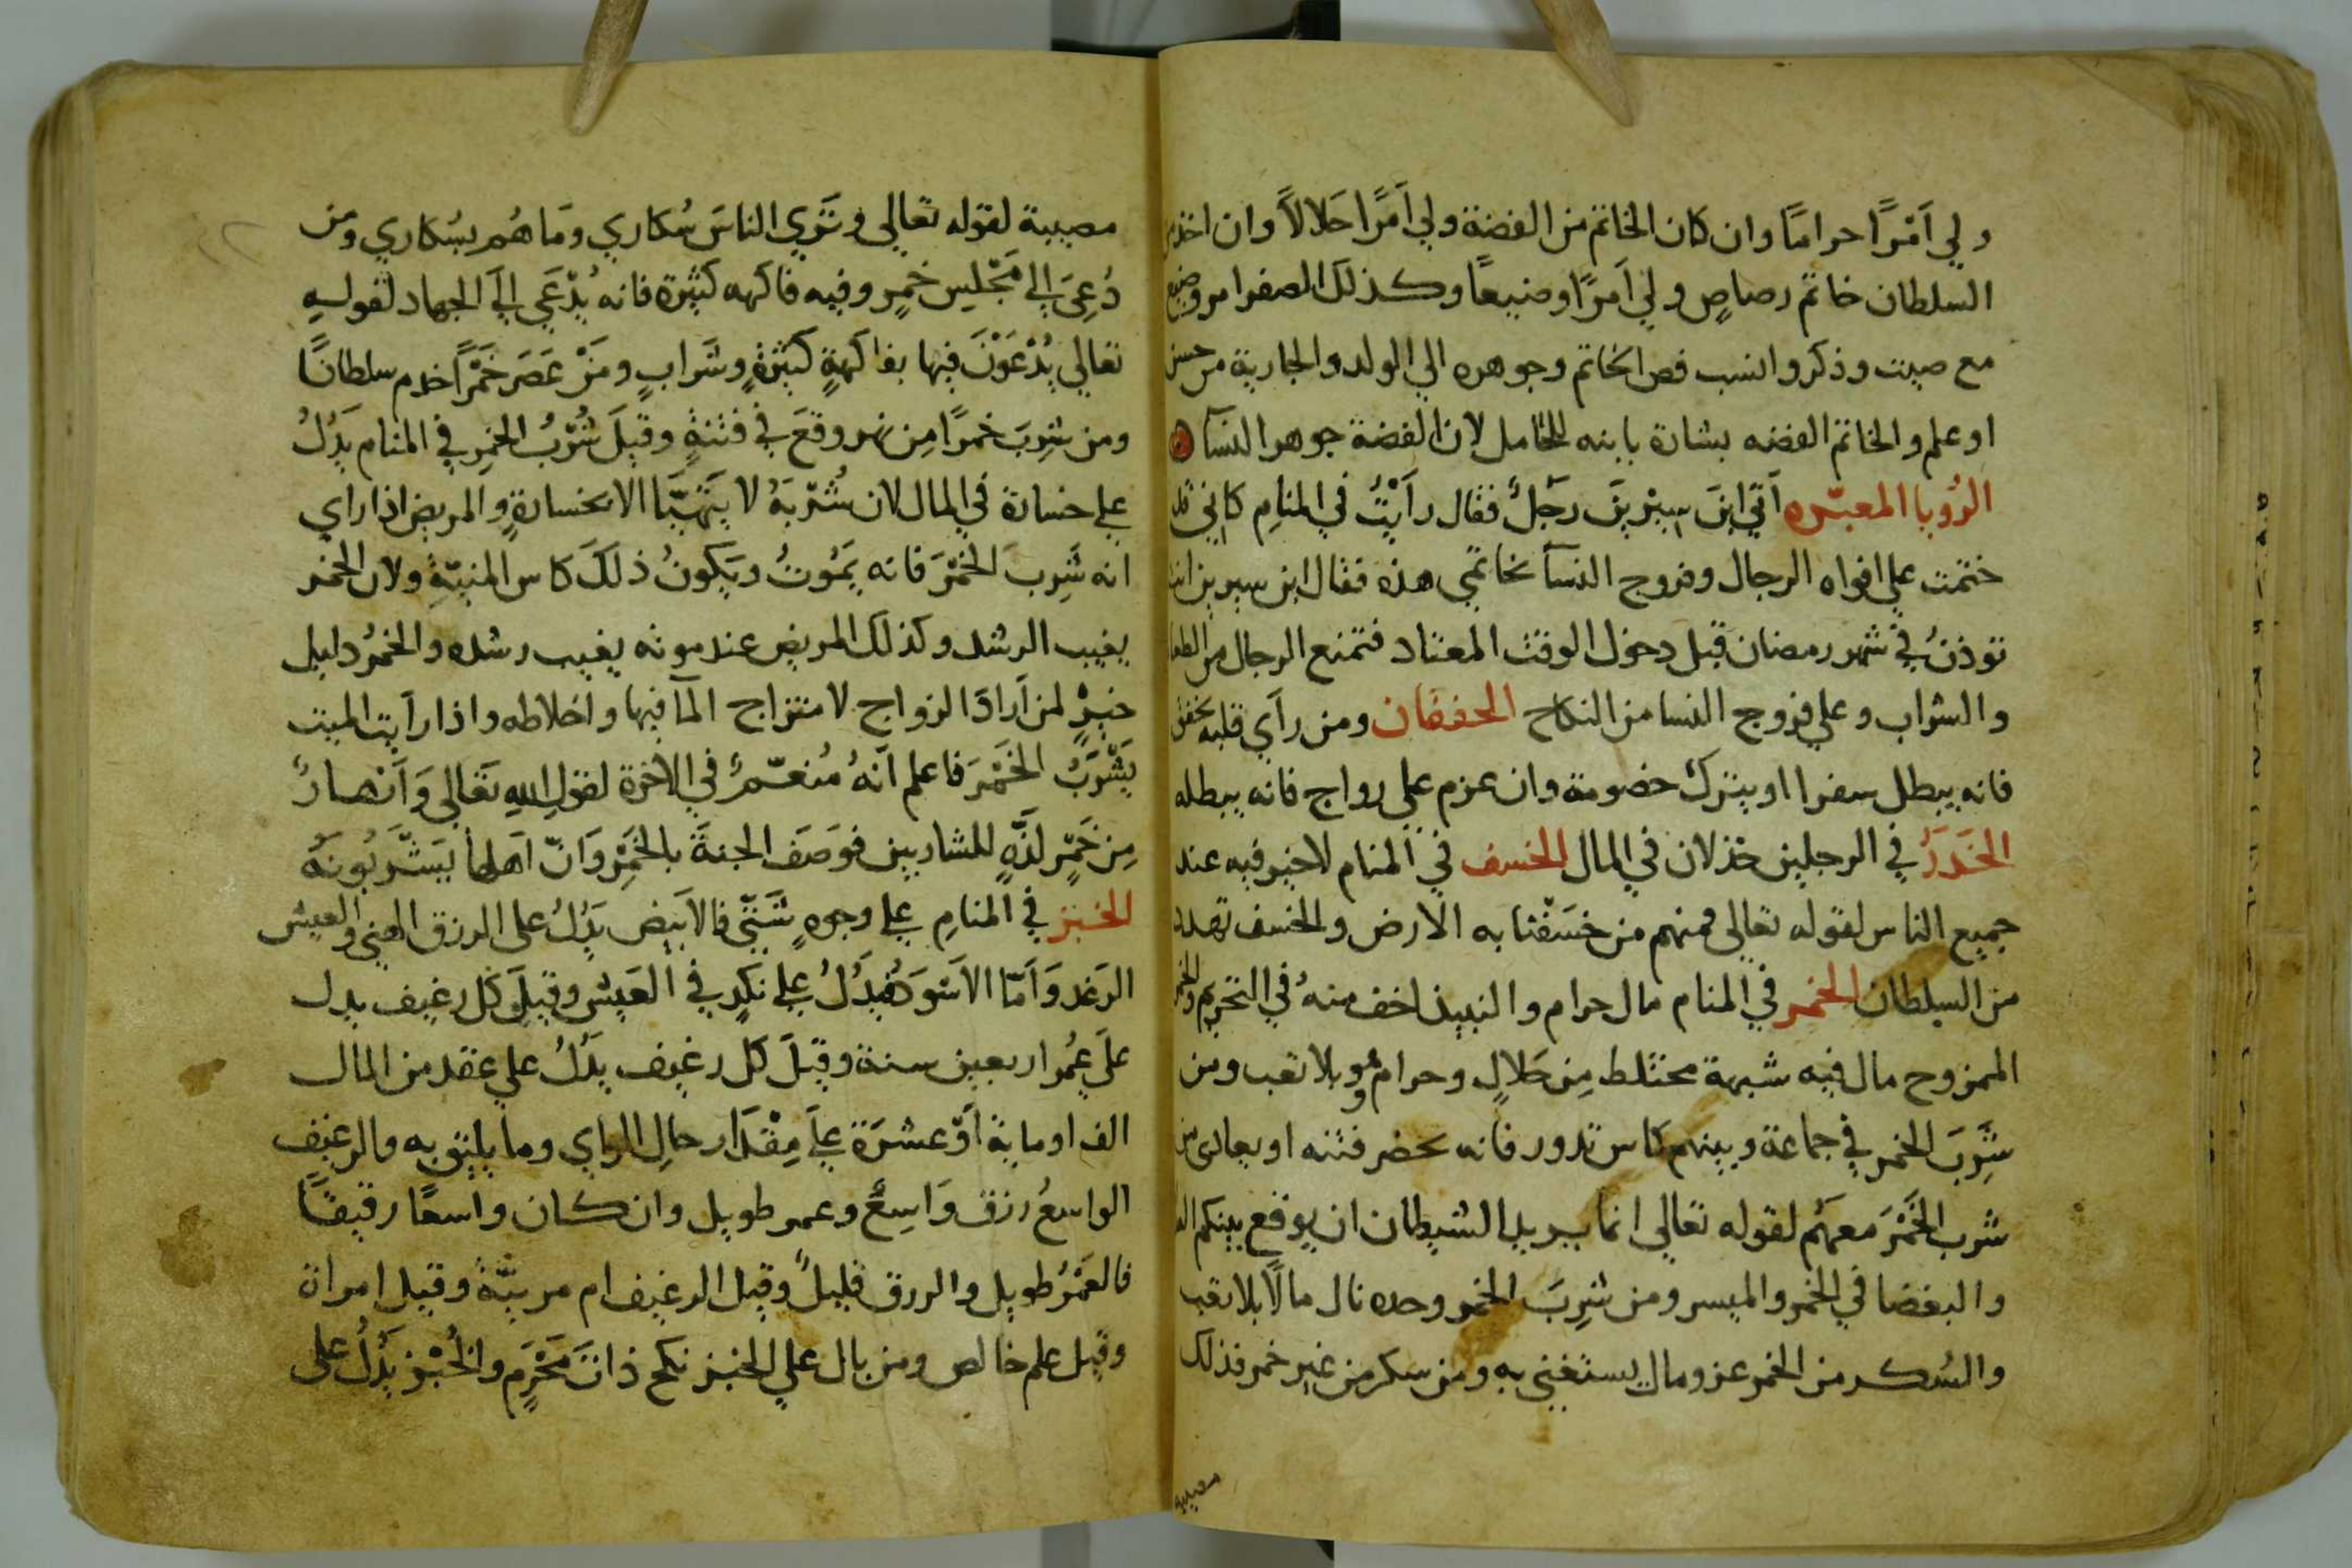 ولي اَمْرًا حرامًا وان كان الخاتم من الفضة ولي اَمْرًا حَلالاً وان اخذ من
السلطان خاتم رصاصٍ ولي اَمرًا وضيعًا وكذلك الصفر امر وضيع
مع صيت وذكر وانسب فص الخاتم وجوهره الي الولد والجارية من حسن
او علم والخاتم الفضه بشارة بابنه للحامل لان الفضة جوهر النسآ
الرُويا المعبّره اَتي ابنَ سِيْرِيْنَ رَجُلٌ فقال رَاَيْتُ في المنامِ كاني قد
ختمت علي افواه الرجال وفروج النسآ بخاتمي هذه فقال ابن سيرين انت
توذنُ في شهر رمضان قبل دخول الوقت المعتاد فتمنع الرجال من الطعا
والشراب وعلي فروج النسا من النكاح الخفقان ومن رآي قلبه يخفق
فانه يبطل سفرا او يترك خصومة وان عزم علي زواج فانه يبطله
الخَدَرُ في الرجلين خذلان في المال الخسف في المنام لا خير فيه عند
جميع الناس لقوله تعالي فمنهم من خسَفْنا به الارض والخسف تهدد
من السلطان الخمر في المنام مال حرام والنبيذ اخف منهُ في التحريم والخمر
الممزوج مال فيه شبهة مختلط مِن حَلالٍ وحرامٍ وبلا تعب ومن
شَرِبَ الخمر في جماعة وبينهم كاس تدور فانه يحضر فتنه او يعادى من
شرب الخَمْرَ معهُم لقوله تعالي انما يريد الشيطان ان يوقع بينكم الع
والبغضا في الخمر والميسر ومن شَرِبَ الخمر وحده نال مالًا بلا تعب
والسُكر من الخمر عز ومال يستغني به ومن سكر من غير خمر فذلك
مصيبة
مصيبة لقوله تعالي وتَرَي الناسَ سُكاري ومَا هُم بسُكاري ومن
دُعِيَ الي مَجْلِسِ خَمرٍ وفيه فاكهه كثيرة فانه يُدْعَي اليَ الجهاد لقولهِ
تعالي يُدْعَوْنَ فيها بفاكهةٍ كثيرةٍ وشَرابٍ ومَنْ عَصَرَ خَمْراً خدم سلطانًا
ومن شرِبَ خمرًا مِن نهر وقعَ في فتنةٍ وقيلَ شُرْبُ الخمرِ في المنام يَدُلُ
علي خسارة في المال لان شُرْبَهُ لا يَتَهيَّا الا بخسارةٍ والمريض اذا راي
انه شَرِبَ الخَمْرَ فانه يَمُوتُ ويَكونُ ذلكَ كاس المنيّةِ ولان الخمر
يغيب الرشد وكذلك المريض عند موته يغيب رشده والخمرُ دليل
خيرٍ لمن اَرادَ الزواج لامتزاج المآ فيها واخلاطه واذا رايت الميت
يَشْرَبُ الخَمْرَ فاعلم اَنّهُ مُنعّمٌ في الاخرة لقولِ اللهِ تعَالي وَاَنْهارٌ
مِن خَمْرٍ لذَّةٍ للشاربين فوَصَفَ الجنةَ بالخَمْرِ وَانّ اهلها يَشْرَبُونَهُ
الخبز في المنامِ علي وجوهٍ شَتّي فالاَبيض يَدُلُ على الرزق الهني والعيش
الرَغد وَاَمّا الاَسْوَد فيَدُلُ علي نكَدٍ في العَيش وقيلَ كل رغيف يدل
علَي عُمر اربعين سنة وقيلَ كل رغيف يدُلُ علي عقد من المال
الف او ماية اَوْ عشرَة علَي مِقْدَار حالِ الراي وما يليق به والرغيف
الواسعُ رزق وَاسِعٌ وعمر طويل وان كان واسعًا رقيقًا
فالعُمْرُ طويل والرزق قليلٌ وقيل الرغيف ام مربيّةٌ وقيل امراة
وقيل علم خالص ومن بال علي الخبز نكح ذاتَ مَحْرَمٍ والخُبْز يَدُلُ على